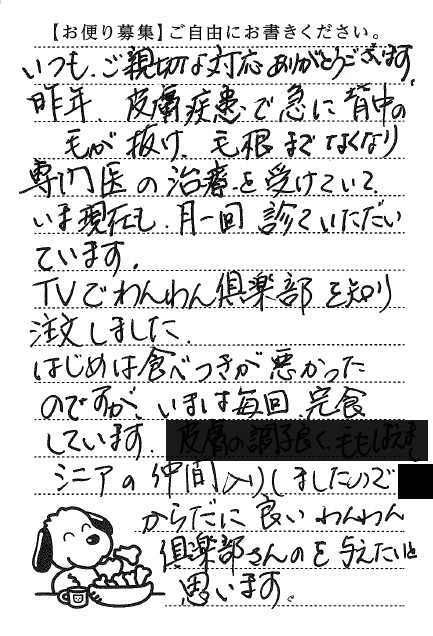 【お便り募集】ご自由にお書きください。
いつも、ご親切な対応ありがとうございます。
昨年、皮膚疾患で急に背中の
毛が抜け、毛根までなくなり
専門医の治療を受けていて
いま現在も、月一回診ていただい
ています。
TVでわんわん倶楽部を知り
注文しました。
はじめは食べつきが悪かった
のですが、いまは毎回、完食
しています。皮膚の調子良く、毛もはえまし
シニアの仲間入りしましたので
からだに良いわんわん
倶楽部さんのを与えたいと
思います。